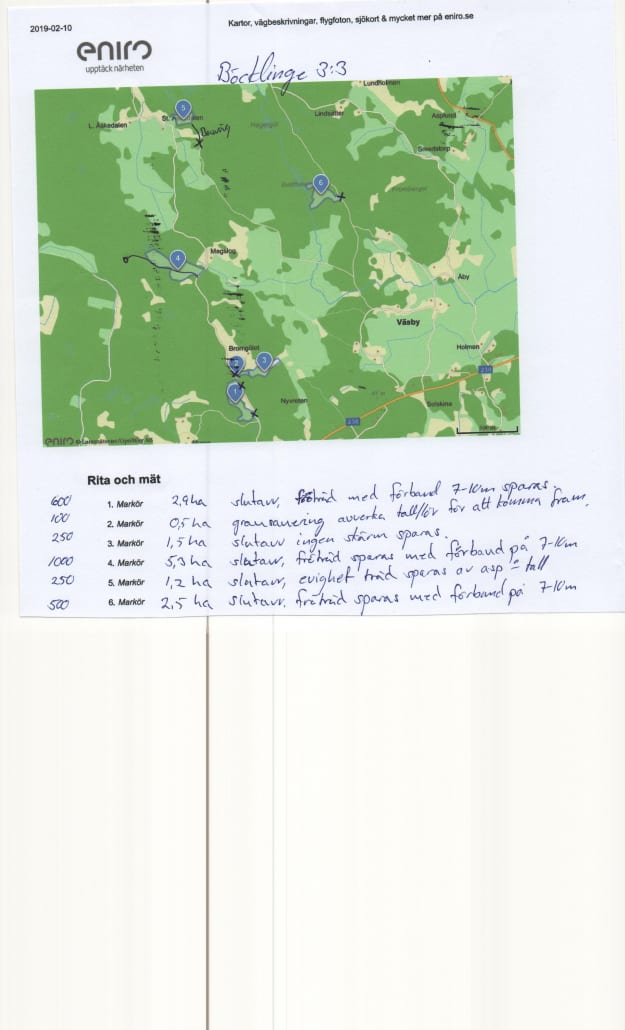 2019-02-10
Kartor, vägbeskrivningar, flygfoton, sjökort & mycket mer på eniro.se
eniro
upptäck närheten
Böcklinge 3:3
Lundholmen
5
L. Älskadalen
St.
Lindsätter
Asplund
Smedstorp
6
4
Magslog
Åby
Väsby
Bromgöl
Holmen
2
3
210
1
Nyvreten
Solskina
210
eniro
Rita och mät
600 1. Markör 2,9 ha slutavv, fröträd med förband 7-10m sparas.
100 2. Markör 0,5 ha gransanering avverka tall/löv för att komma fram.
250 3. Markör 1,5 ha slutavv ingen skärm sparas.
1000 4. Markör 5,3 ha slutavv, fröträd sparas med förband på 7-10m
250 5. Markör 1,2 ha slutavv, evighet träd sparas av asp tall
500 6. Markör 2,5 ha slutavv. fröträd sparas med förband på 7-10m